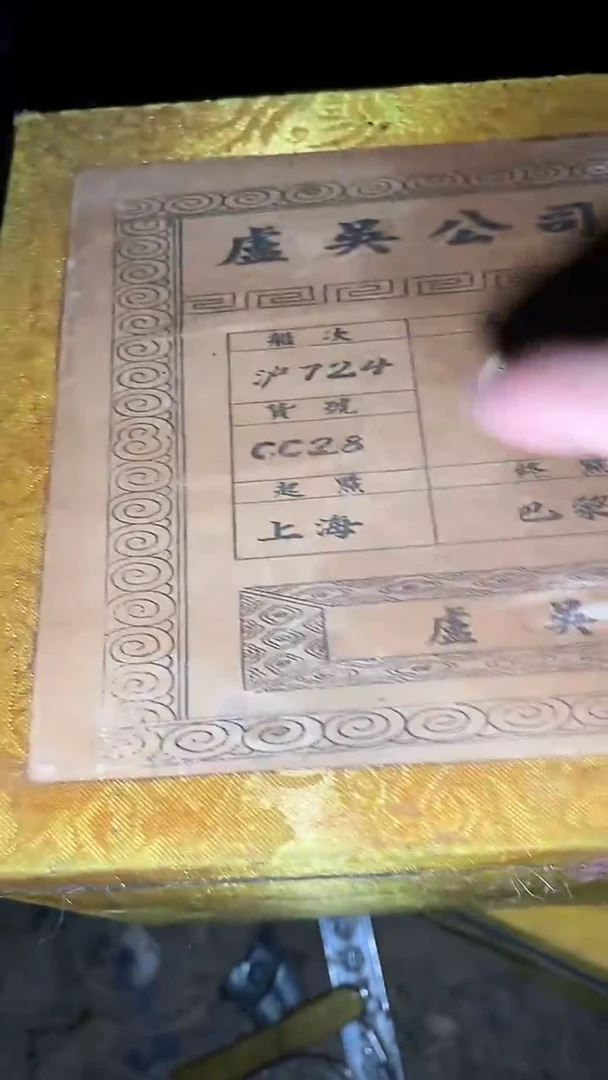 盧吳公司
船次
沪724
貨號
CC28
起點
終點
上海
巴黎
盧吳